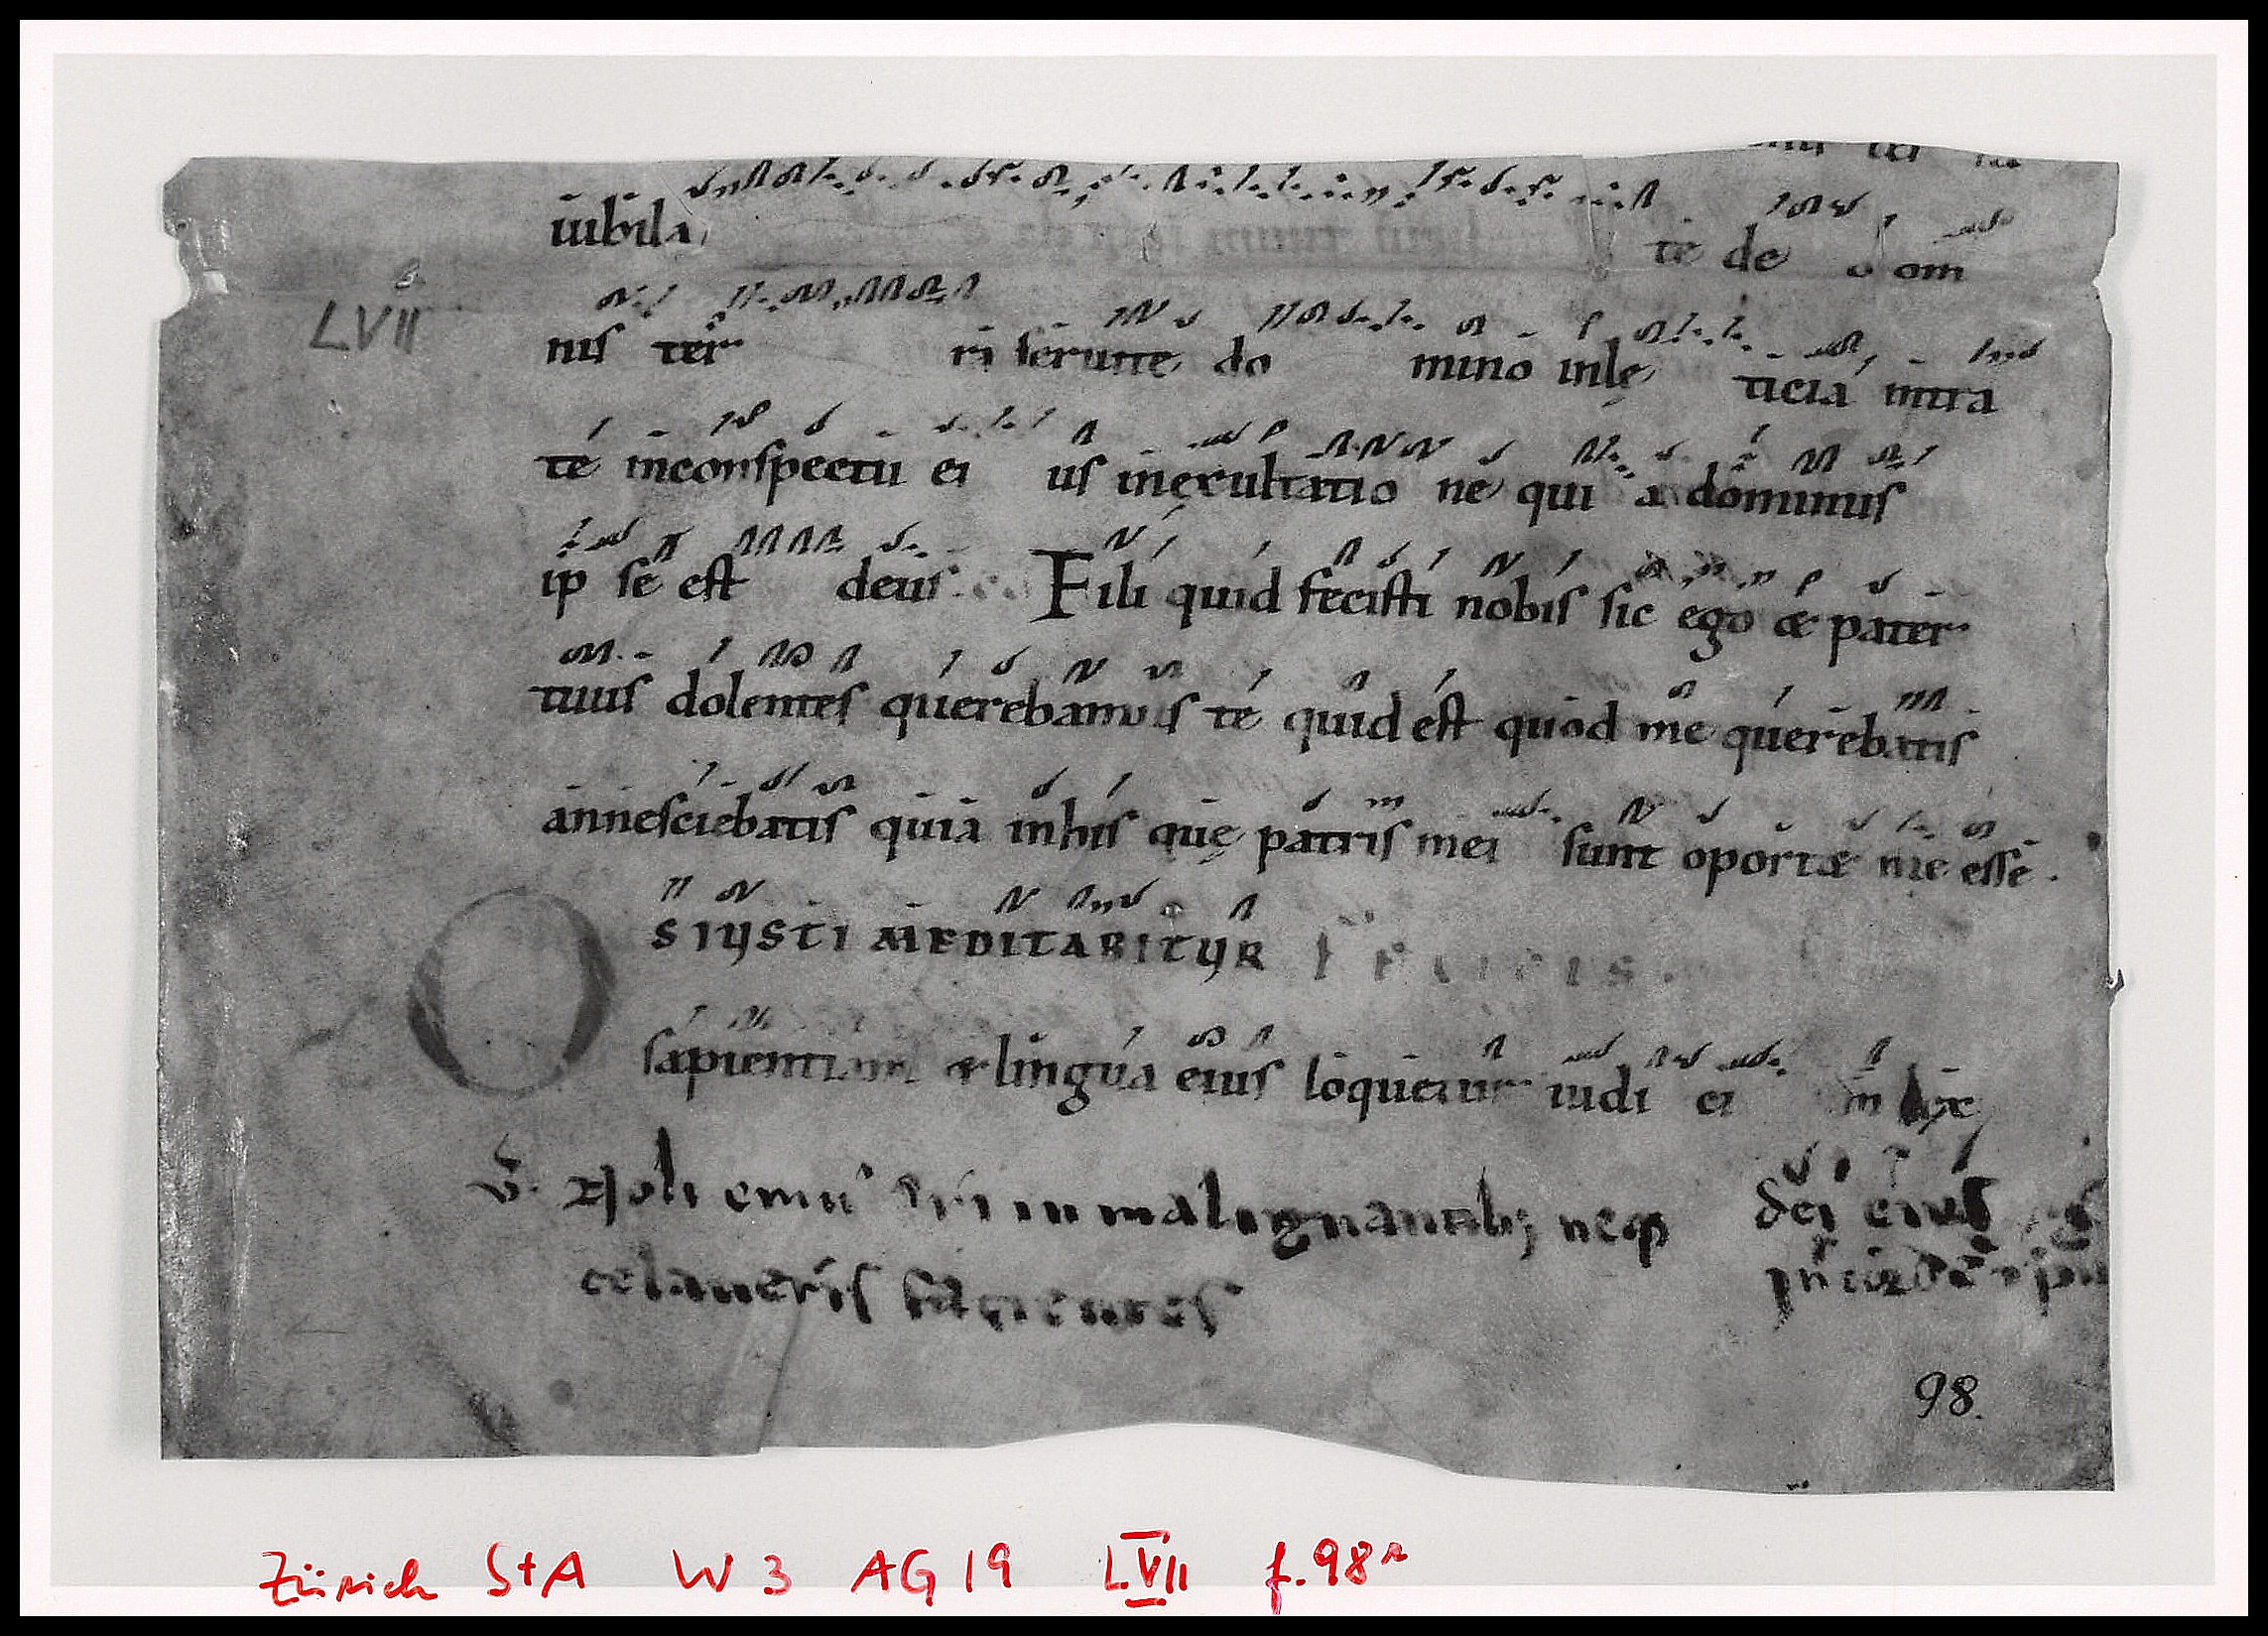 iubila te de o om
LVII
nis ter ra seruite do mino inlę ticia intra
te inconspectu ei us inexultatio ne qui a dominus
ip se est deus. Fili quid fecisti nobis sic ego & pater
tuus dolentes querebamus te quid est quod me querebatis
annesciebatis quia inhis quę patris mei sunt oport& me esse.
OS IUSTI MEDITABITUR
sapientiam & lingua eius loquetur iudi ci in
Noli emu in malignantib; neq; dei eius
celaueris facientes
98.
Zürich StA W 3 AG 19 LVII f. 98r